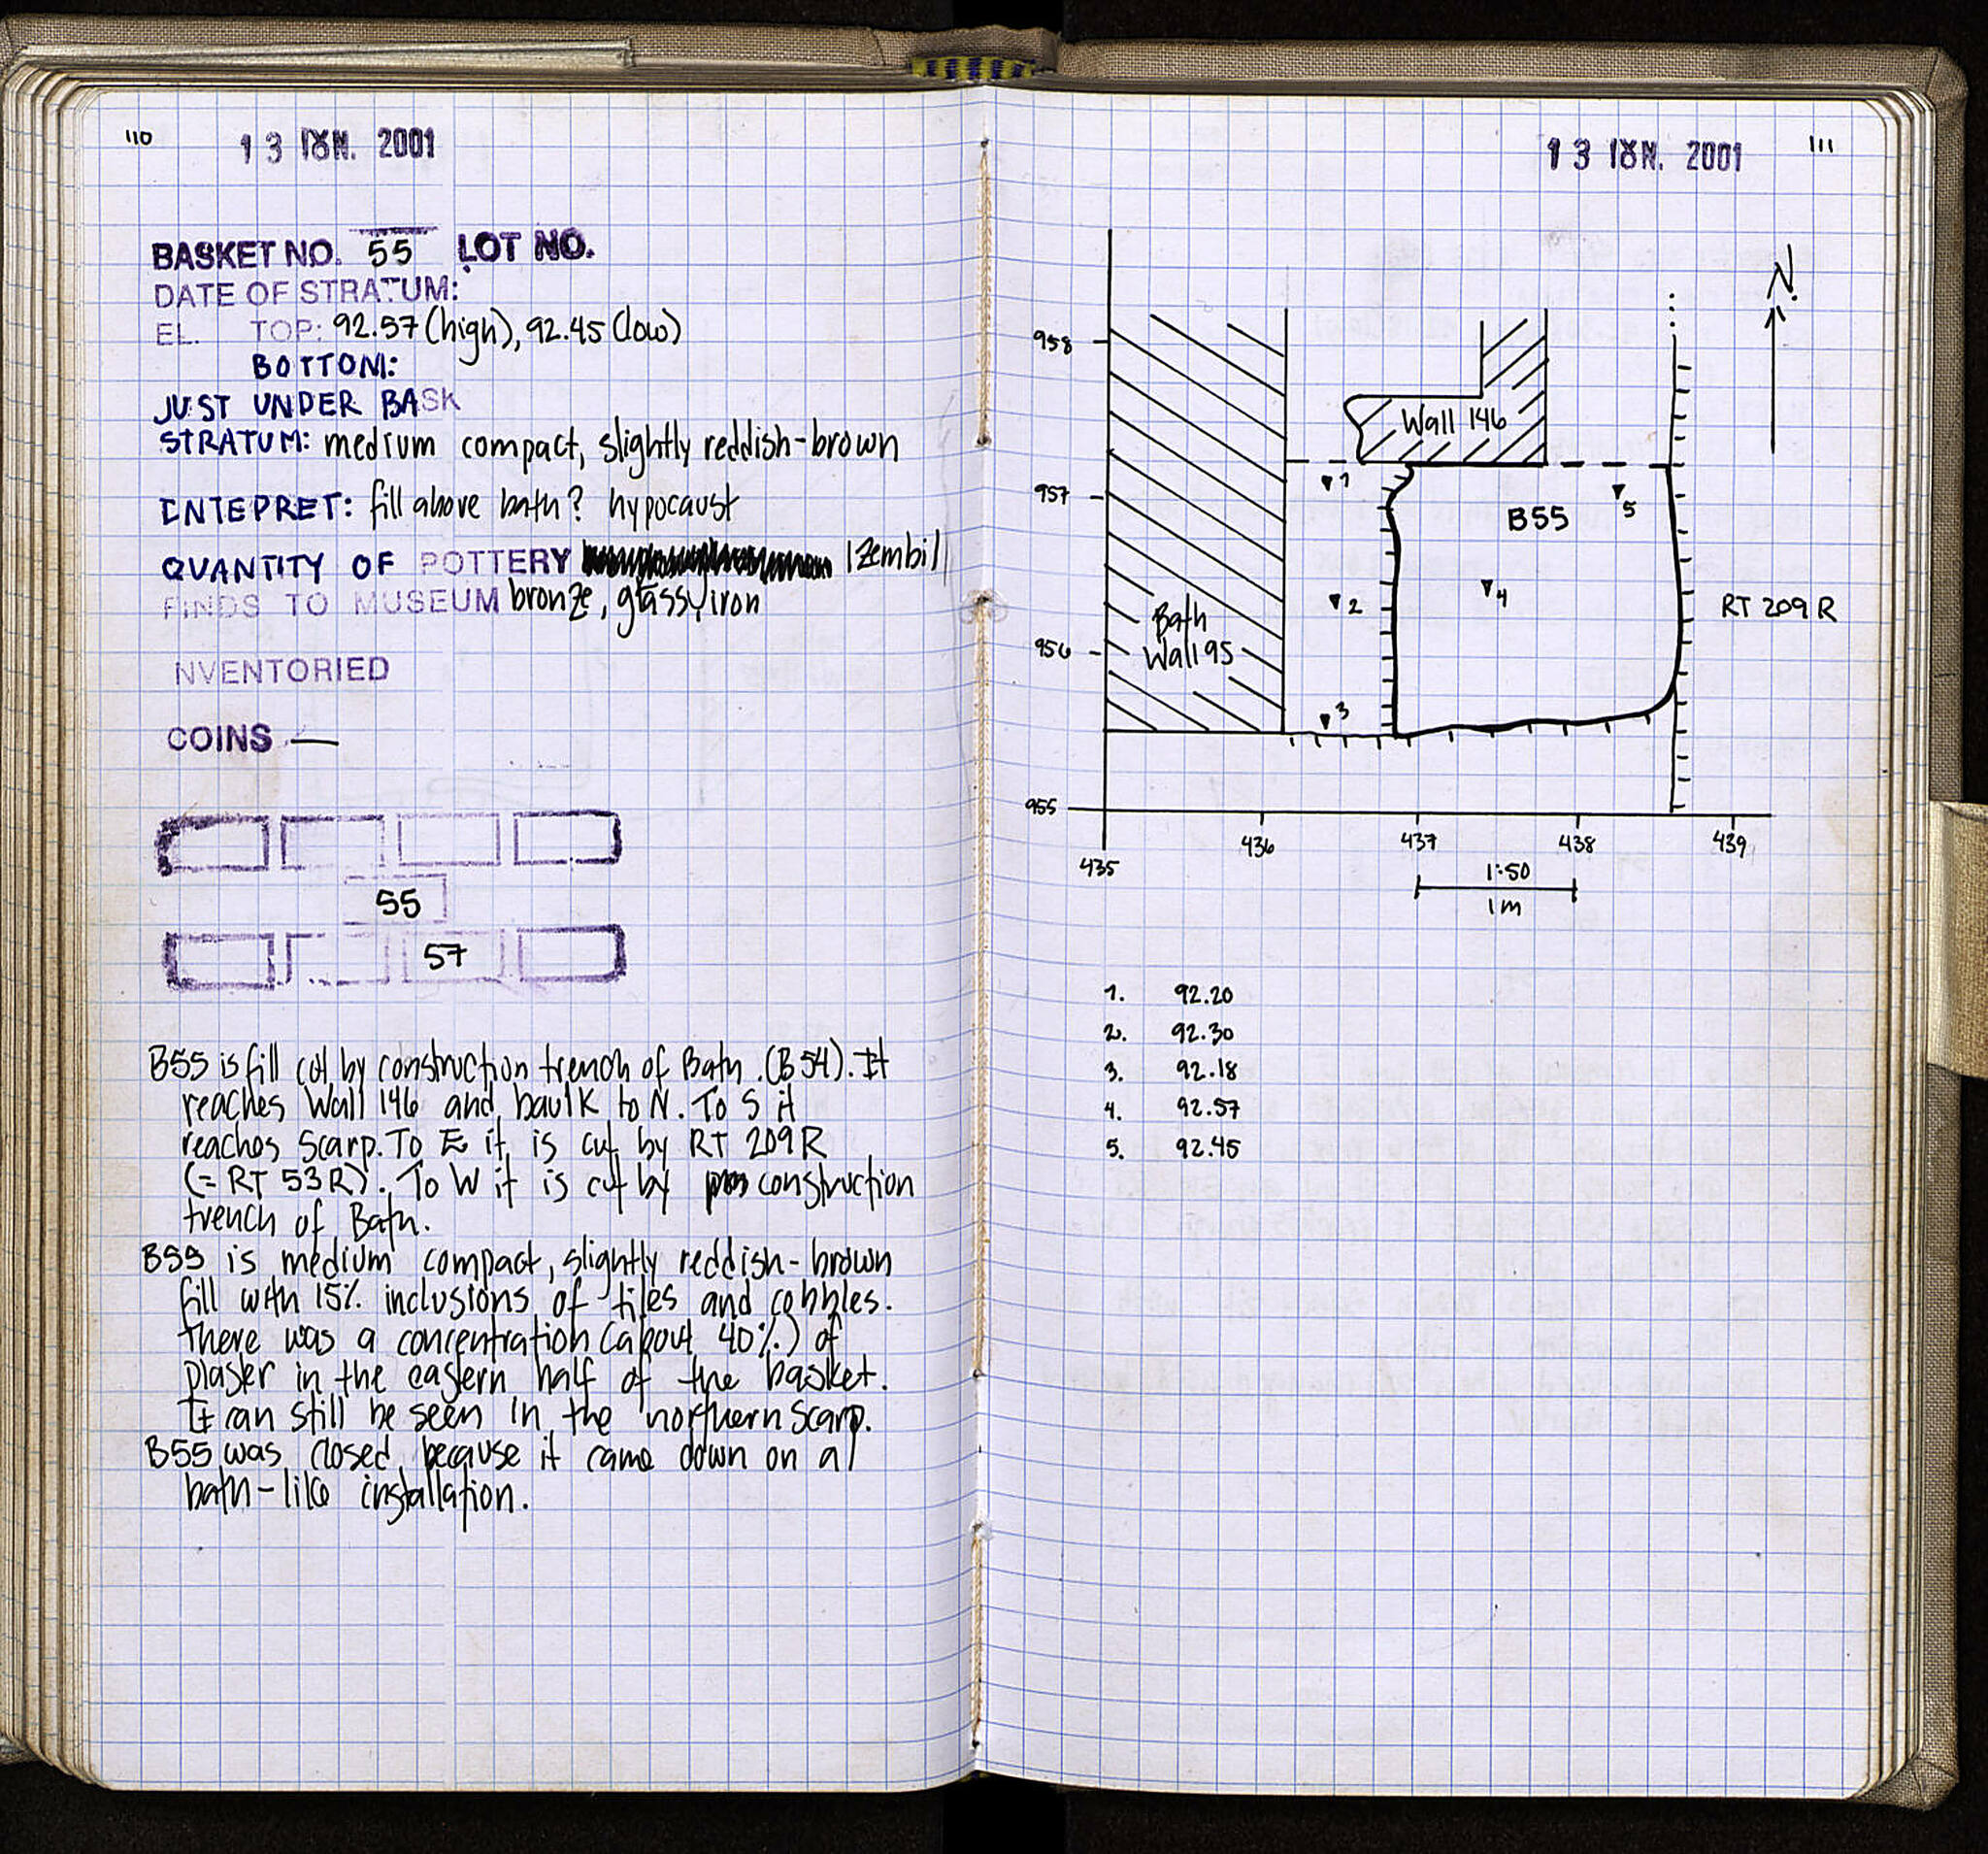 110
13 ΙΟΥΝ. 2001
BASKET NO. 55 LOT NO.
DATE OF STRATUM:
EL. TOP: 92.57 (high), 92.45 (low)
BOTTOM:
JUST UNDER BASK
STRATUM: medium compact, slightly reddish-brown
INTEPRET: fill above bath? hypocaust
QUANTITY OF POTTERY 1 zembil
FINDS TO MUSEUM bronze, glass, iron
NVENTORIED
COINS —
55
57
B55 is fill cut by construction trench of Bath (B54). It
reaches Wall 146 and baulk to N. To S it
reaches scarp. To E it is cut by RT 209R
(= RT 53R). To W it is cut by construction
trench of Bath.
B55 is medium compact, slightly reddish-brown
fill with 15% inclusions of tiles and cobbles.
There was a concentration (about 40%) of
plaster in the eastern half of the basket.
It can still be seen in the northern scarp.
B55 was closed because it came down on a
bath-like installation.
13 ΙΟΥΝ. 2001
111
N
958
Wall 146
957
1
5
B55
2
4
RT 209 R
Bath
Wall 95
956
3
955
435
436
437
438
439
1:50
1m
1. 92.20
2. 92.30
3. 92.18
4. 92.57
5. 92.45